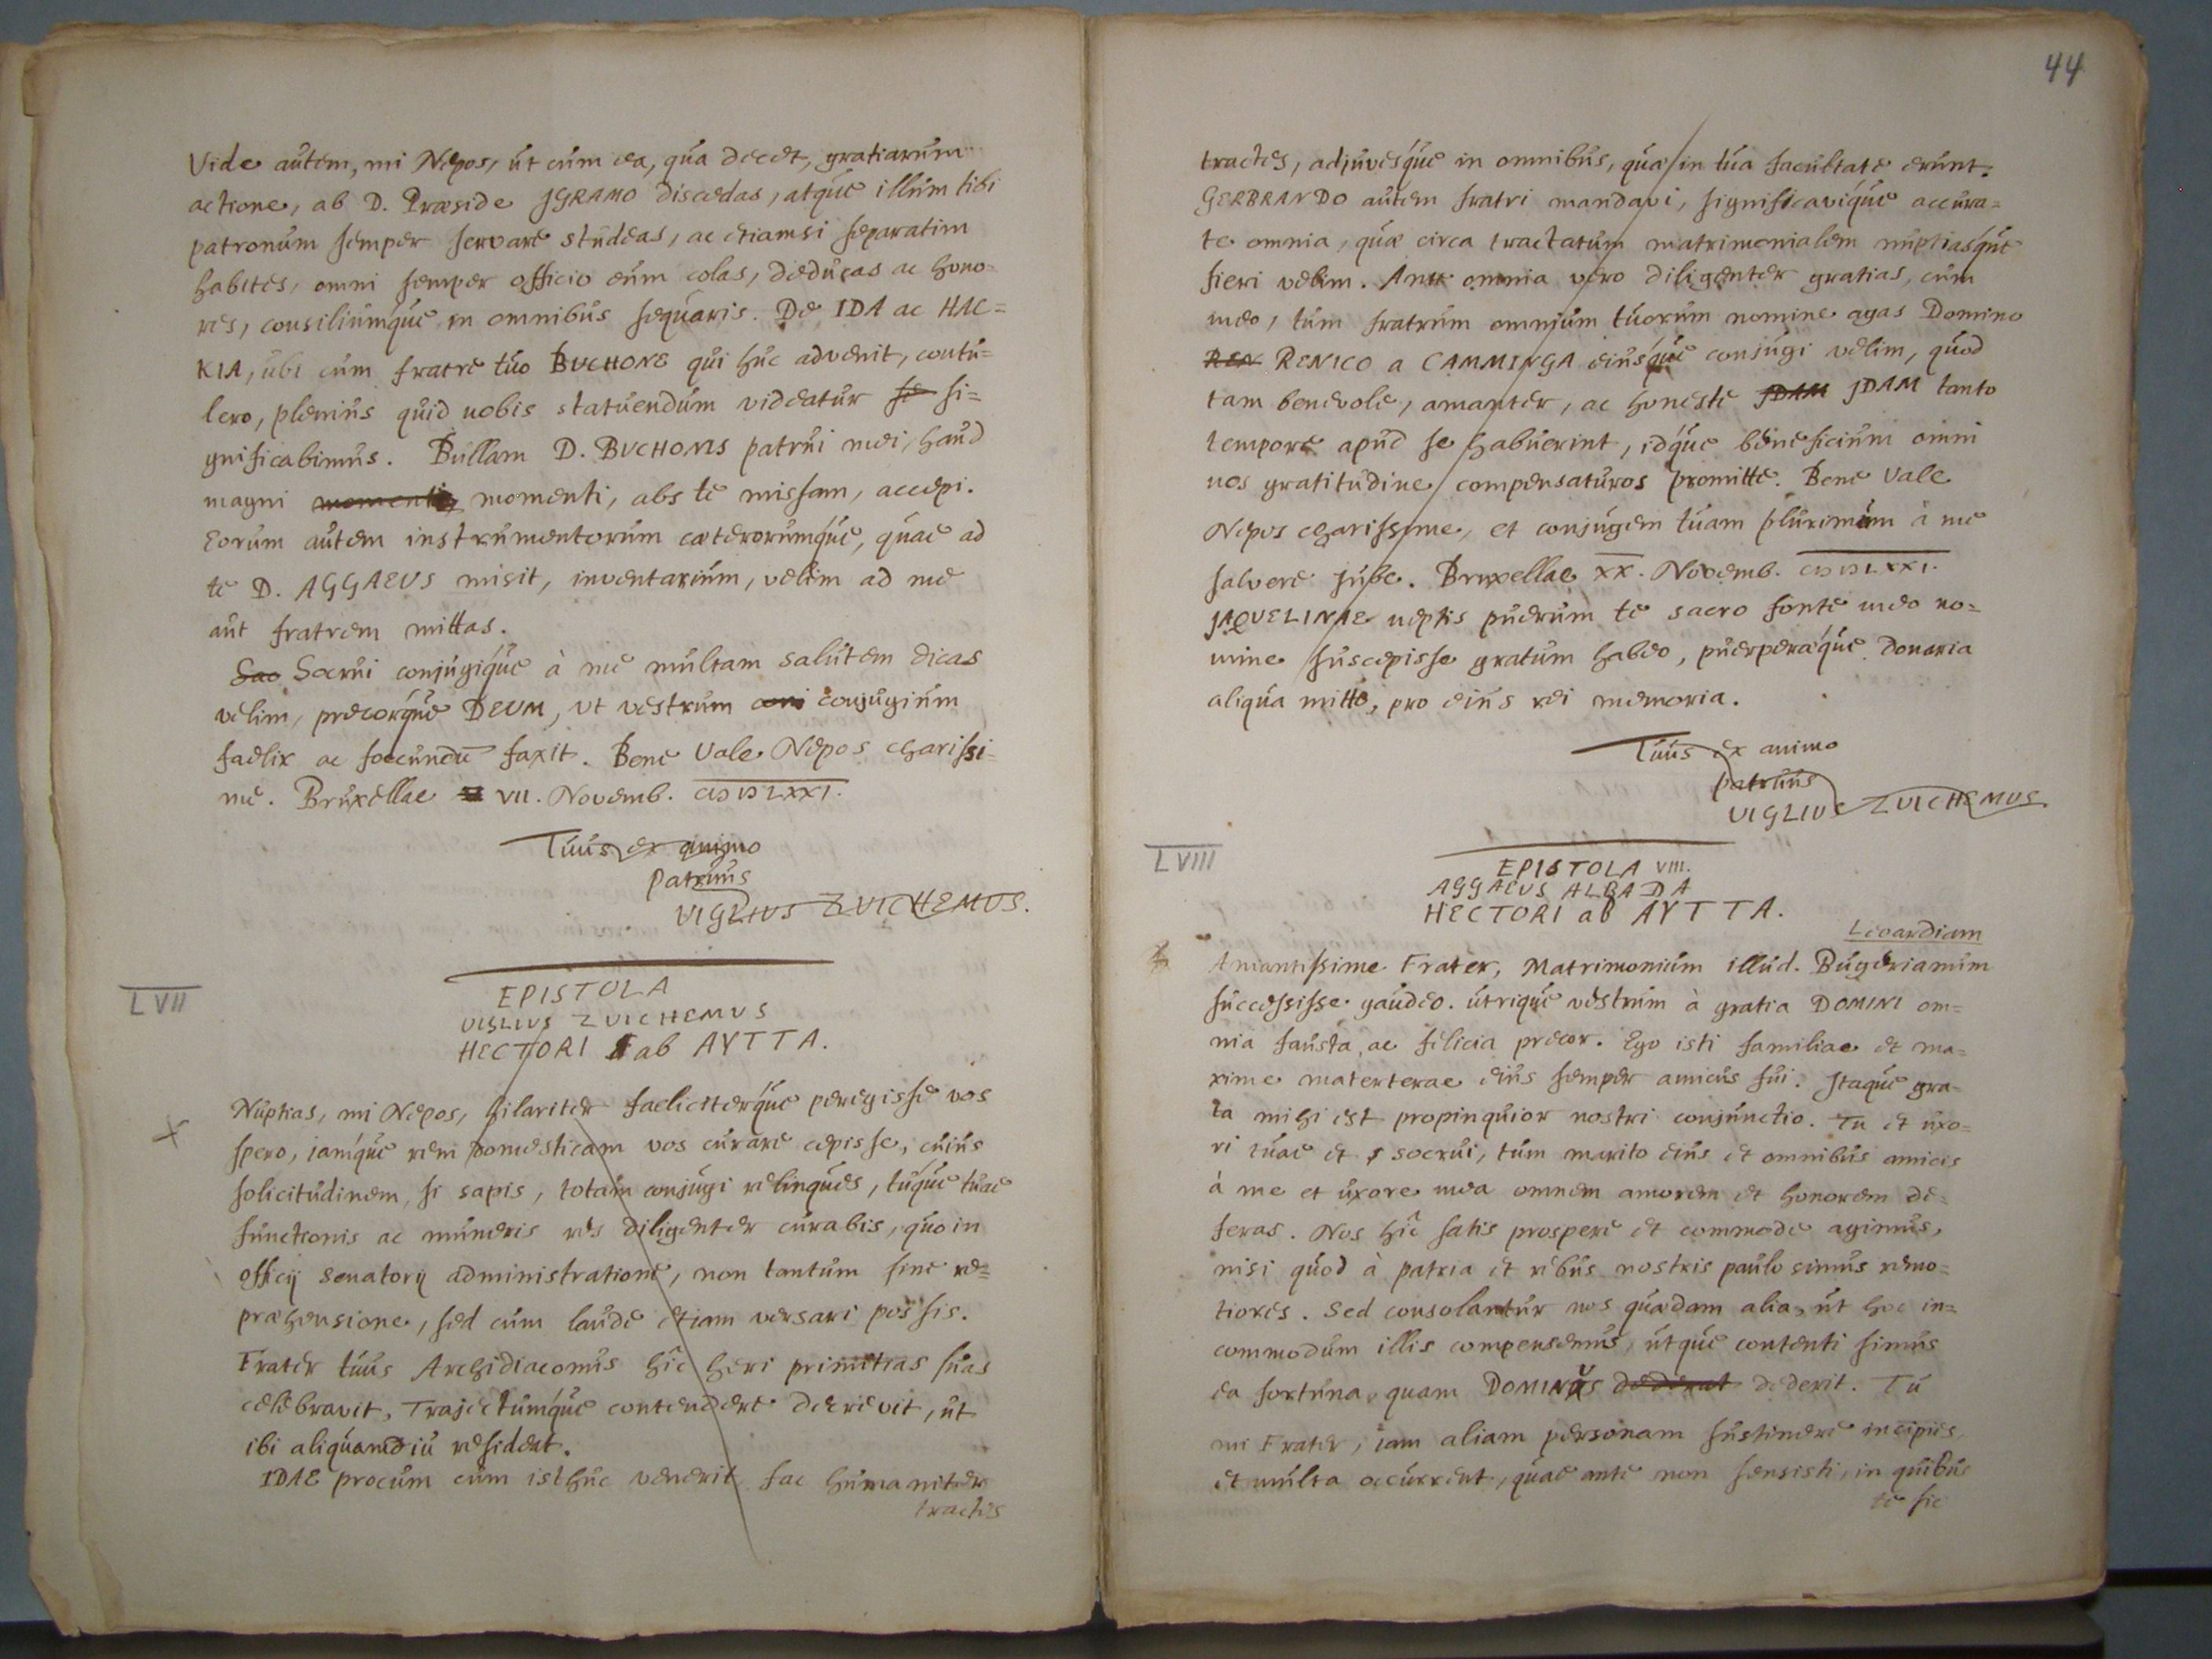 Vide autem, mi Nepos, ut cum ea, qua decet, gratiarum
actione, ab D. Præside IGRAMO discedas, atque illum tibi
patronum semper servare studeas, ac etiamsi separatim
habites, omni semper officio eum colas, deducas ac hono=
res, consiliumque in omnibus sequaris. De IDA ac HAC=
KIA, ubi cum fratre tuo BUCHONE qui huc advenit, contu=
lero, plenius quid nobis statuendum videatur se si=
gnificabimus. Bullam D. BUCHONIS patrui mei, haud
magni momenti momenti, abs te missam, accepi.
Eorum autem instrumentorum cæterorumque, quae ad
te D. AGGAEUS misit, inventarium, velim ad me
aut fratrem mittas.
Sao Socrui conjugique à me multam salutem dicas
velim, precorque DEUM, ut vestrum coni conjugium
faelix ac foecundū faxit. Bene Vale Nepos charissi=
me. Bruxellae VII. Novemb. CIƆIƆLXXI.
Tuus ex animo
Patruus
VIGLIUS ZUICHEMUS.
LVII
EPISTOLA
VIGLIUS ZUICHEMUS
HECTORI ab AYTTA.
Nuptias, mi Nepos, hilariter faeliciterque peregisse vos
X
spero, iamque rem domesticam vos curare cepisse, cuius
solicitudinem, si sapis, totam conjugi relinques, tuque tuae
functionis ac muneris res diligenter curabis, quo in
officij Senatorij administratione, non tantum sine re=
præhensione, sed cum laude etiam versari possis.
Frater tuus Archidiaconus hîc heri primitias suas
celebravit, Trajectumque contendere decrevit, ut
ibi aliquamdiu resideat.
IDAE procum cum isthuc venerit fac humaniter
tractes
44
tractes, adjuvesque in omnibus, quæ in tua facultate erunt.
GERBRANDO autem fratri mandavi, significavique accura=
te omnia, quæ circa tractatum matrimonialem nuptiasque
fieri velim. Ante omnia vero diligenter gratias, cum
meo, tum fratrum omnium tuorum nomine agas Domino
REN RENICO a CAMMINGA eiusque conjugi velim, quod
tam benevole, amanter, ac honeste JDAM JDAM tanto
tempore apud se habuerint, idque beneficium omni
nos gratitudine compensaturos promitte. Bene Vale
Nepos charissime, et conjugem tuam plurimùm à me
salvere jube. Bruxellae XX. Novemb. CIƆIƆLXXI.
JAQUELINAE neptis puerum te sacro fonte meo no=
mine suscepisse gratum habeo, puerperæque donaria
aliqua mitto, pro eius rei memoria.
Tuus ex animo
patruus
VIGLIUS ZUICHEMUS.
LVIII
EPISTOLA VIII.
AGGAEUS ALBADA
HECTORI ab AYTTA.
Leoardiam
Amantissime Frater, Matrimonium illud. Bugerianum
successisse gaudeo. utrique vestrum à gratia DOMINI om=
nia fausta, ac felicia precor. Ego isti familiae et ma=
xime materterae eius semper amicus fui. Itaque gra=
ta mihi est propinquior nostri conjunctio. Tu et uxo=
ri tuae et socrui, tum marito eius et omnibus amicis
à me et uxore mea omnem amorem et honorem de=
feras. Nos hîc satis prospere et commode agimus,
nisi quod à patria et rebus nostris paulo simus remo=
tiores. Sed consolantur nos quædam alia, ut hoc in=
commodum illis compensemus, utque contenti simus
ea fortuna, quam DOMINUS dederat dederit. Tu
mi Frater, iam aliam personam sustinere incipies,
et multa occurrent, quae ante non sensisti, in quibus
te sic